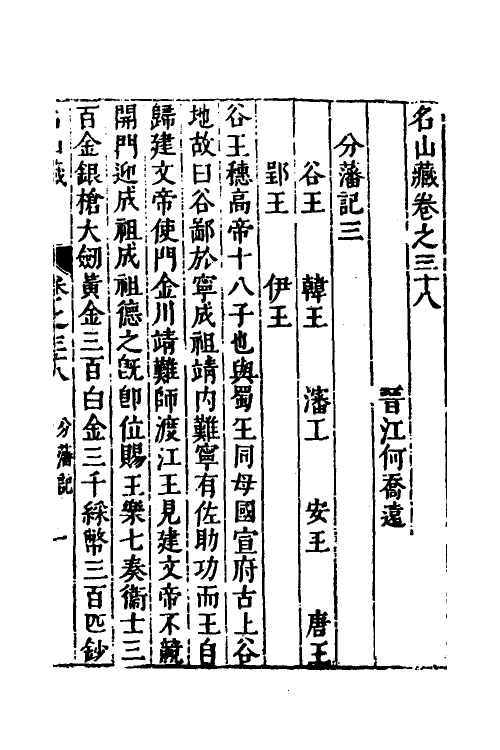 名山藏卷之三十八
晉江何喬遠
分藩記三
谷王 韓王 瀋王 安王 唐王
郢王 伊王
谷王穗高帝十八子也與蜀王同母國宣府古上谷
地故曰谷鄙於寧成祖靖内難寧有佐助功而王自
歸建文帝使門金川靖難師渡江王見建文帝不競
開門迎成祖成祖德之旣卽位賜王樂七奏衞士三
百金銀槍大劒黃金三百白金三千綵幣三百匹鈔
名山藏 卷之三十八 分藩記 一